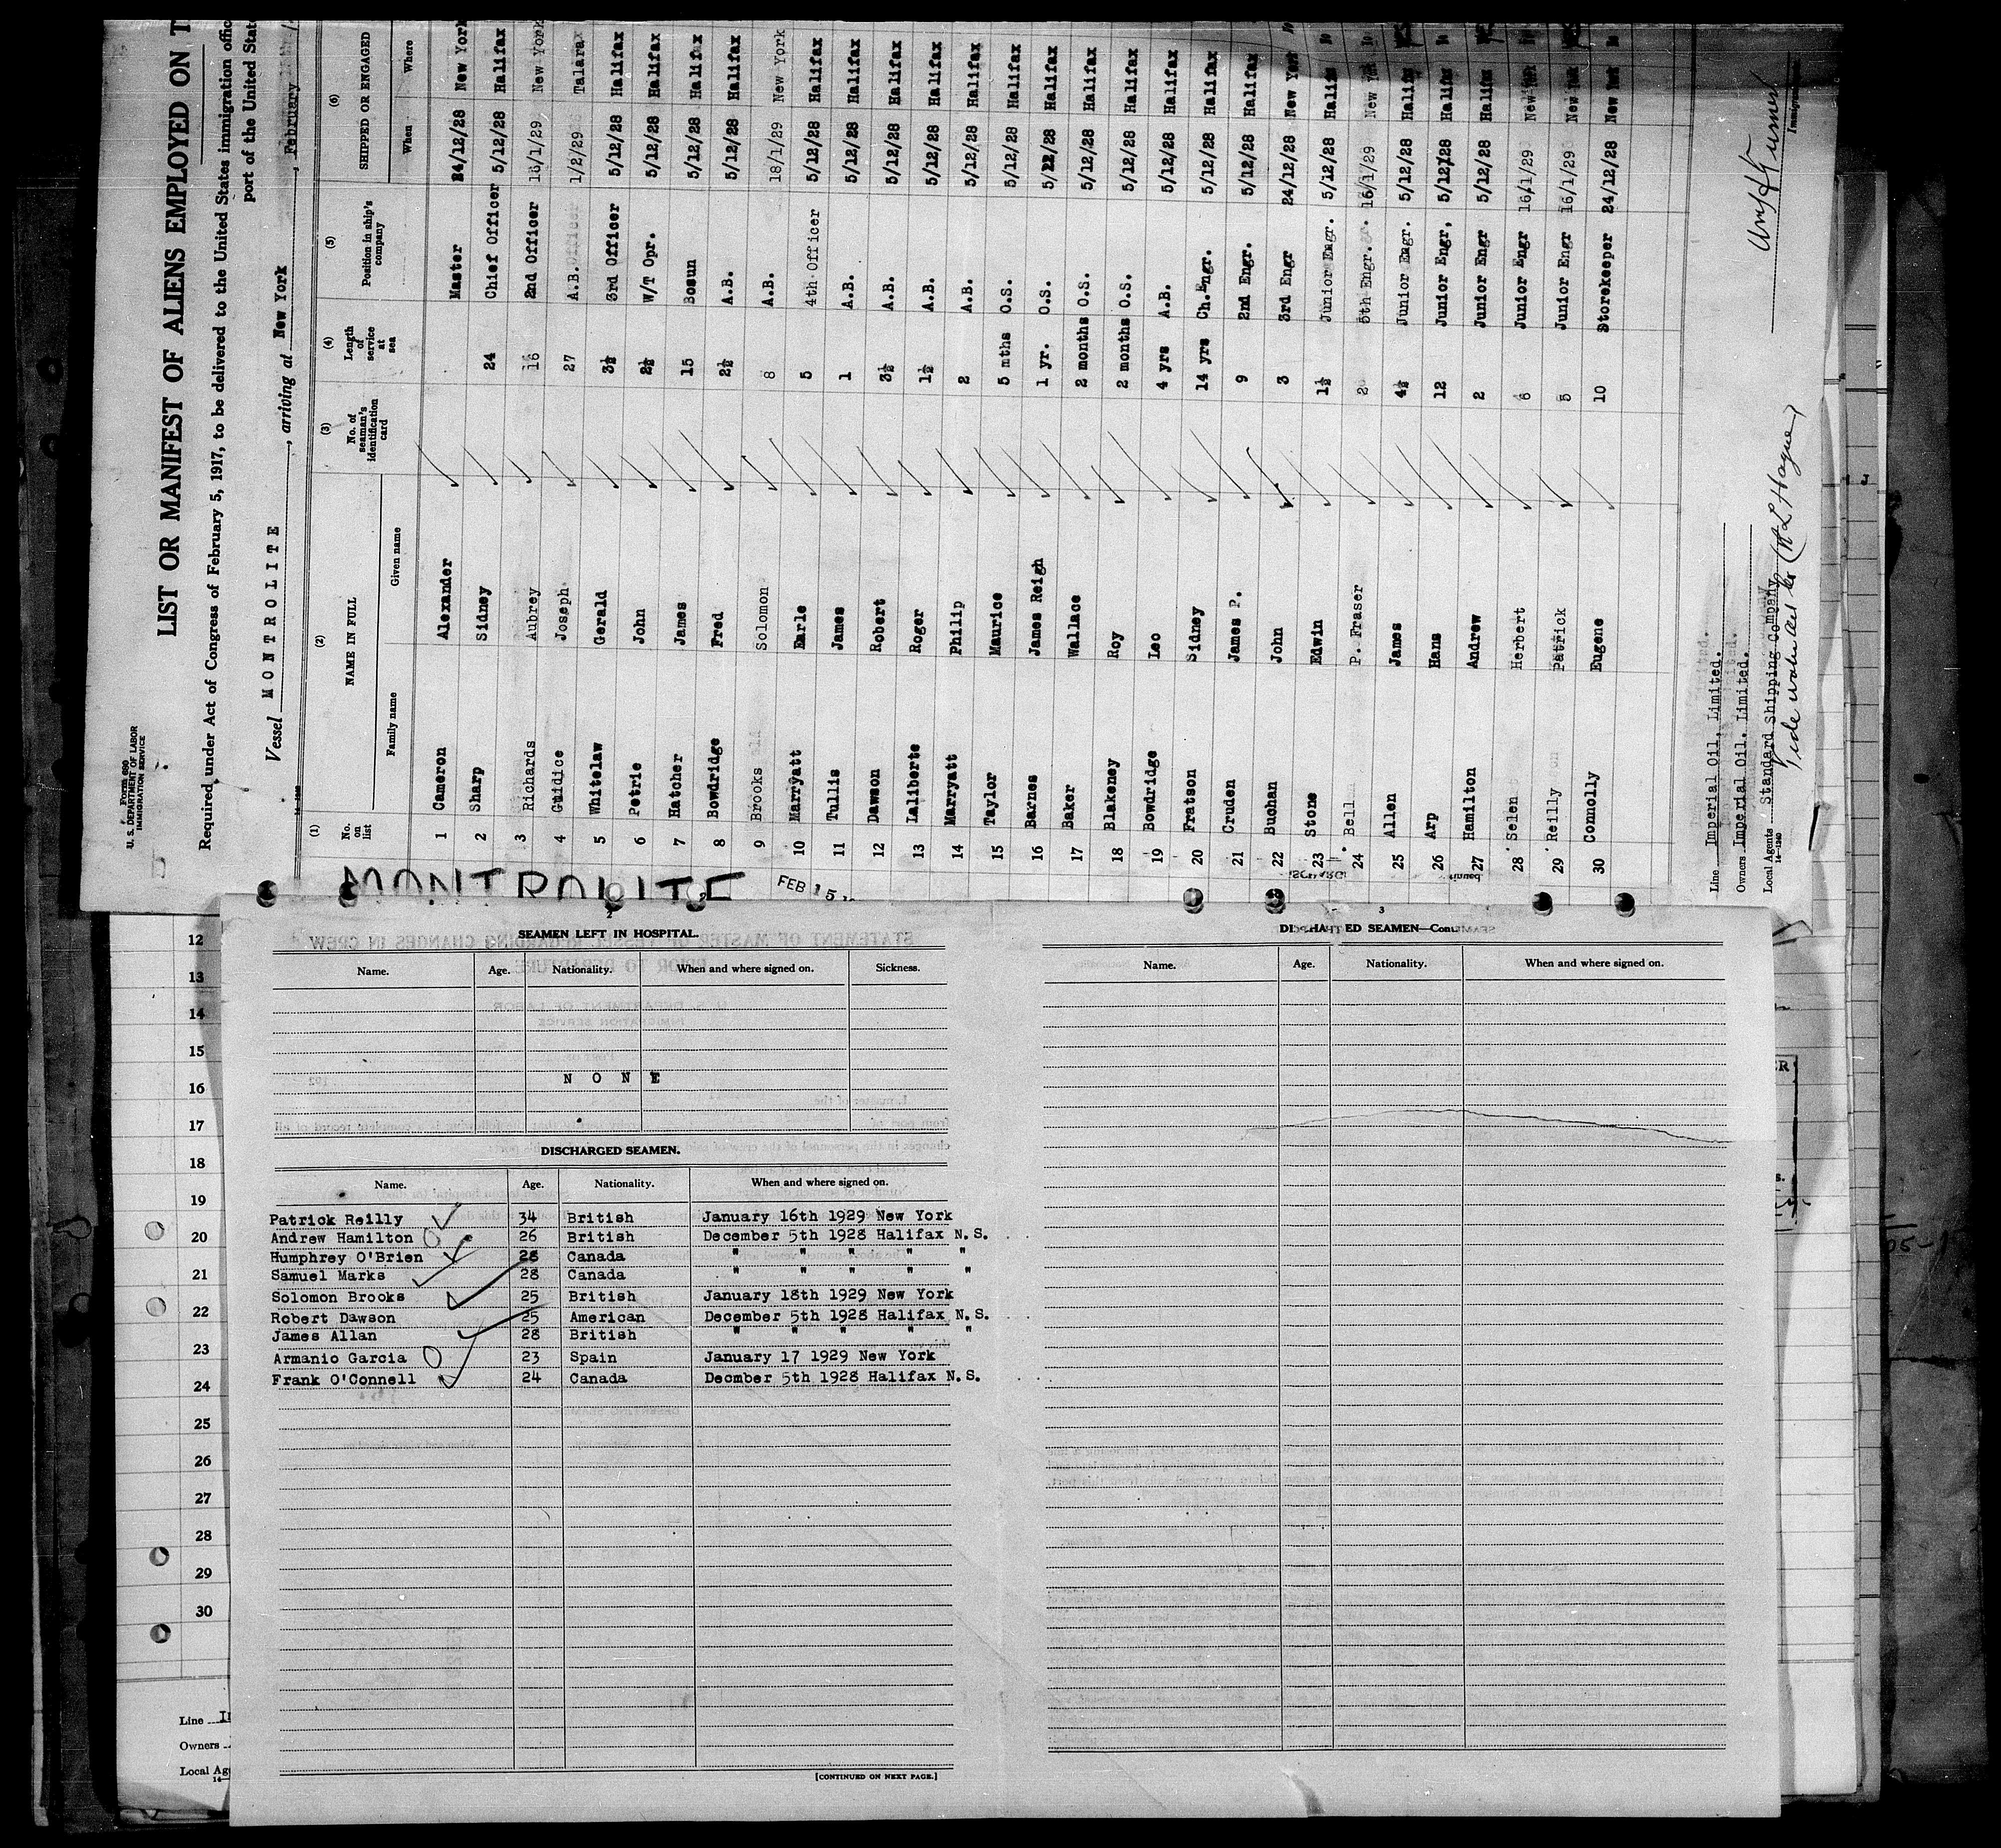 Form 690
U. S. DEPARTMENT OF LABOR
IMMIGRATION SERVICE
LIST OR MANIFEST OF ALIENS EMPLOYED ON T
Required under Act of Congress of February 5, 1917, to be delivered to the United States immigration offic
port of the United Stat
Vessel MONTROLITE, arriving at New York, February
(1) No. on list (2) NAME IN FULL Family name Given name (3) No. of seaman's identification card (4) Length of service at sea (5) Position in ship's company (6) SHIPPED OR ENGAGED When Where
1 Cameron Alexander Master 24/12/28 New York
2 Sharp Sidney 24 Chief Officer 5/12/28 Halifax
3 Richards Aubrey 16 2nd Officer 18/1/29 New York
4 Guidice Joseph 27 A.B. 1/2/29 Talara
5 Whitelaw Gerald 3½ 3rd Officer 5/12/28 Halifax
6 Petrie John 2½ W/T Opr. 5/12/28 Halifax
7 Hatcher James 15 Bosun 5/12/28 Halifax
8 Bowdridge Fred 2½ A.B. 5/12/28 Halifax
9 Brooks Solomon 8 A.B. 18/1/29 New York
10 Marryatt Earle 5 4th Officer 5/12/28 Halifax
11 Tullis James 1 A.B. 5/12/28 Halifax
12 Dawson Robert 3½ A.B. 5/12/28 Halifax
13 Laliberte Roger 1½ A.B. 5/12/28 Halifax
14 Marryatt Philip 2 A.B. 5/12/28 Halifax
15 Taylor Maurice 5 mths O.S. 5/12/28 Halifax
16 Barnes James Reigh 1 yr. O.S. 5/12/28 Halifax
17 Baker Wallace 2 months O.S. 5/12/28 Halifax
18 Blakeney Roy 2 months O.S. 5/12/28 Halifax
19 Bowdridge Leo 4 yrs A.B. 5/12/28 Halifax
20 Fratson Sidney 14 yrs Ch.Engr. 5/12/28 Halifax
21 Cruden James P. 9 2nd Engr. 5/12/28 Halifax
22 Buchan John 3 3rd Engr 24/12/28 New York
23 Stone Edwin 1½ Junior Engr. 5/12/28 Halifax
24 Bell P. Fraser 2 5th Engr. 16/1/29 New York
25 Allen James 4½ Junior Engr. 5/12/28 Halifax
26 Arp Hans 12 Junior Engr, 5/12/28 Halifax
27 Hamilton Andrew 2 Junior Engr 5/12/28 Halifax
28 Selen Herbert 6 Junior Engr 16/1/29 New York
29 Reilly Patrick 5 Junior Engr 16/1/29 New York
30 Connolly Eugene 10 Storekeeper 24/12/28 New York
Line Imperial Oil, Limited.
Owners Imperial Oil. Limited.
Local Agents Standard Shipping Company
14—1240
MONTROLITE FEB 15
2
SEAMEN LEFT IN HOSPITAL.
Name. Age. Nationality. When and where signed on. Sickness.
NONE
DISCHARGED SEAMEN.
Name. Age. Nationality. When and where signed on.
Patrick Reilly 34 British January 16th 1929 New York
Andrew Hamilton 26 British December 5th 1928 Halifax N.S.
Humphrey O'Brien 28 Canada " " " " "
Samuel Marks 28 Canada " " " " "
Solomon Brooks 25 British January 18th 1929 New York
Robert Dawson 25 American December 5th 1928 Halifax N.S.
James Allan 28 British " " " " "
Armanio Garcia 23 Spain January 17 1929 New York
Frank O'Connell 24 Canada Decmber 5th 1928 Halifax N.S.
[CONTINUED ON NEXT PAGE.]
3
ED SEAMEN—Cont
Name. Age. Nationality. When and where signed on.
12
13
14
15
16
17
18
19
20
21
22
23
24
25
26
27
28
29
30
Line
Owners
Local Ag
14—